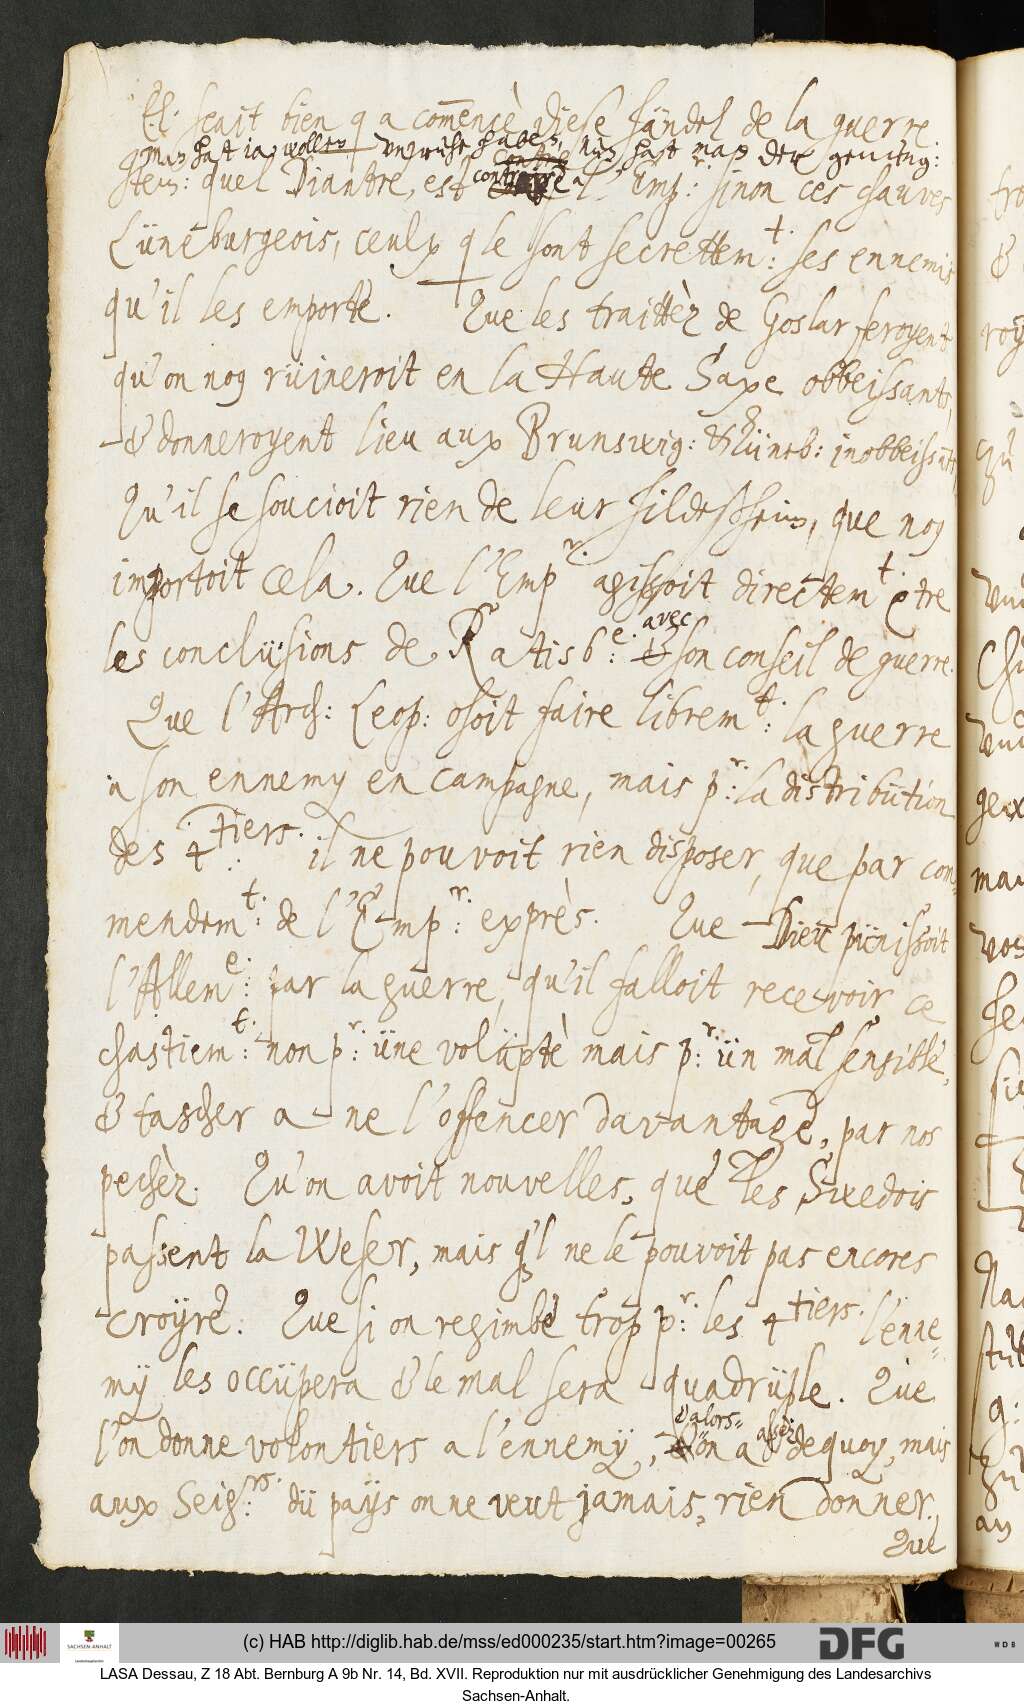 El: scait bien q a com̄encè diese händel de la guerre.
man hatt ia wollen vnruhe haben, nun hatt man der genung:
stem: quel Diantre, est contraire a l' Emp:r sinon ces chauves
Lüneburgeois, ceulx q le sont secrettem:t ses ennemis
qu'il les emporte. Que les traittèz de Goslar feroyent
qu'on nos rüineroit en la Haute Saxe obbeissants,
& donneroyent lieu aux Brunswig: & Lüneb: inobbeissāts
Qu'il se soucioit rien de leur Hildesheim, que nos
importoit cela. Que l'Emp:r agissoit directem:t c̄tre
les conclüsions de Ratisb:e avec son conseil de guerre.
Que l'Arch: Leop: osoit faire librem:t la guerre
a son ennemy en campagne, mais p:r la distribütion
des 4:tiers. il ne pouvoit rien disposer, que par com-
mendem:t de l'Emp:r exprès. Que Dieu pünissoit
l'Allem:e par la guerre, qu'il falloit recevoir ce
chastiem:t non p:r üne volüptè mais p:r ün mal sensible,
& tascher a ne l'offencer davantage, par nos
pechèz. Qu'on avoit nouvelles, que les Swedois
passent la Weser, mais q'l ne le pouvoit pas encores
croyre. Que si on regimbe trop p:r les 4tiers. l'enne-
my les occüpera & le mal sera quadrüple. Que
l'on donne volontiers a l'ennemÿ, & alors on a assèz dequoy, mais
aux Seig:rs. dü païs on ne veut jamais, rien donner.
Que
(c) HAB http://diglib.hab.de/mss/ed000235/start.htm?image=00265
SACHSEN-ANHALT
DFG
WDB
LASA Dessau, Z 18 Abt. Bernburg A 9b Nr. 14, Bd. XVII. Reproduktion nur mit ausdrücklicher Genehmigung des Landesarchivs
Sachsen-Anhalt.